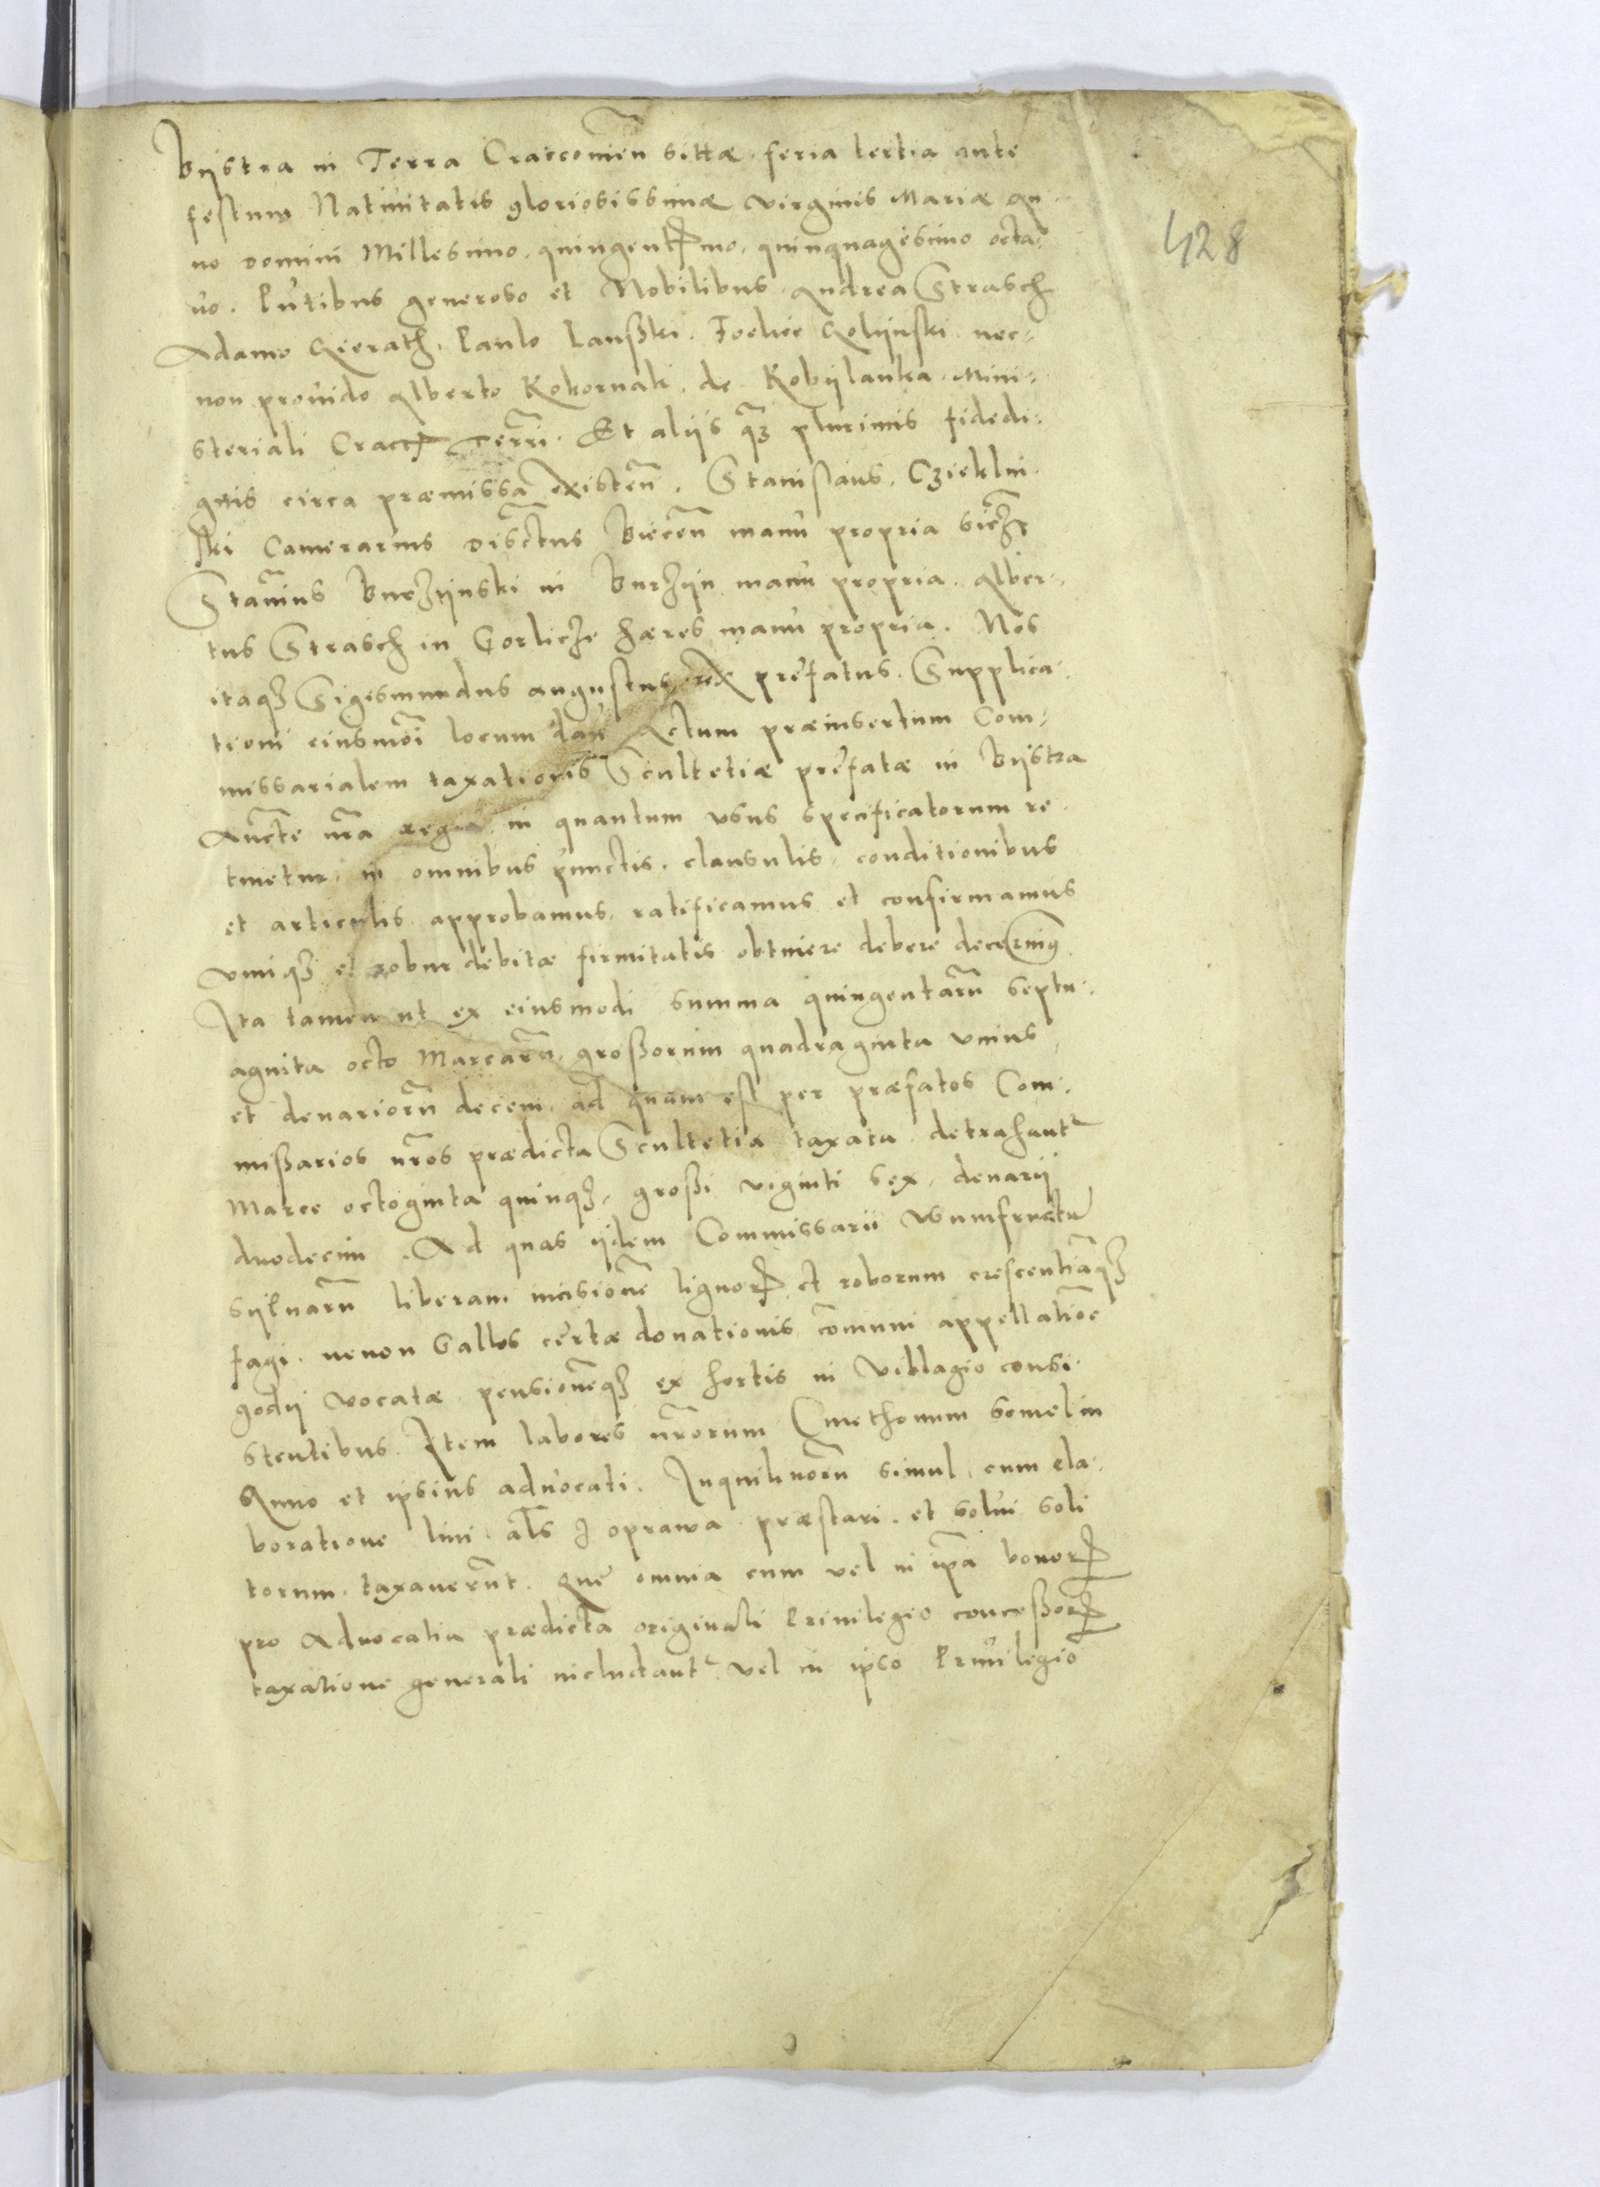 Bystra in Terra Cracconien̄ sittæ feria tertia ante
festum Natiuitatis gloriosissimæ virginis Mariæ An-
no Domini Millesimo, quingentꝭmo, quinquagesimo octa-
uo. Pn̄tibus generoso et Nobilibus Andrea Strasch
Adamo Paulo Joelice nec-
non prouido Alberto Kokornak de Kobylanka Mini-
steriali Terrī. Et alijs qꝫ plurimis fidedi-
gnis circa præmissa existen̄. Stanislaus Czieklin-
ski Camerarius Districtus Biecen̄ manu propria
Stan̄ius in manu propria. Alber-
tus Strasch in Gorlicze hæres manu propria. Nos
itaqꝫ Sigismundus augustus rex prefatus. Supplica-
tioni eiusmōi locum dan̄ Actum præinsertum Com-
missarialem taxationis Scultetiæ prefatæ in Bystra
Auctē nr̄a regia in quantum vsus specificatorum re-
tinetur, in omnibus punctis, clausulis, conditionibus
et articulis approbamus, ratificamus et confirmamus
vimqꝫ et robur debitæ firmitatis obtinere debere decernimꝰ
Ita tamen ut ex eiusmodi summa quingentarū septu-
aginta octo Marcarū, großorum quadraginta vnius,
et denariorū decem, ad quam est per præfatos Com-
mißarios nr̄os prædicta Scultetia taxata detrahantr̄
Marce octoginta quinqꝫ, großi viginti sex, denarij
duodecim. Ad quas ijdem Commissarii
syluarū liberam incisionē lignorꝝ et roborum crescentiāqꝫ
fagi. nenon Gallos certæ donationis cōmuni appellatiōe
godij vocatæ pensionēqꝫ ex hortis in villagio consi-
stentibus. Item labores nr̄orum Cmethonum semel in
Anno et ipsius aduocati. Inquilinorū simul, cum ela-
boratione lini. al̄s z oprawa præstari et solui soli
torum taxauerūnt. Que omnia cum vel in ip̄a bonorꝝ
pro Aduocatia prædicta originali Priuilegio conceßorꝝ
taxatione generali includantr̄, vel in ipso Priuilegio
428